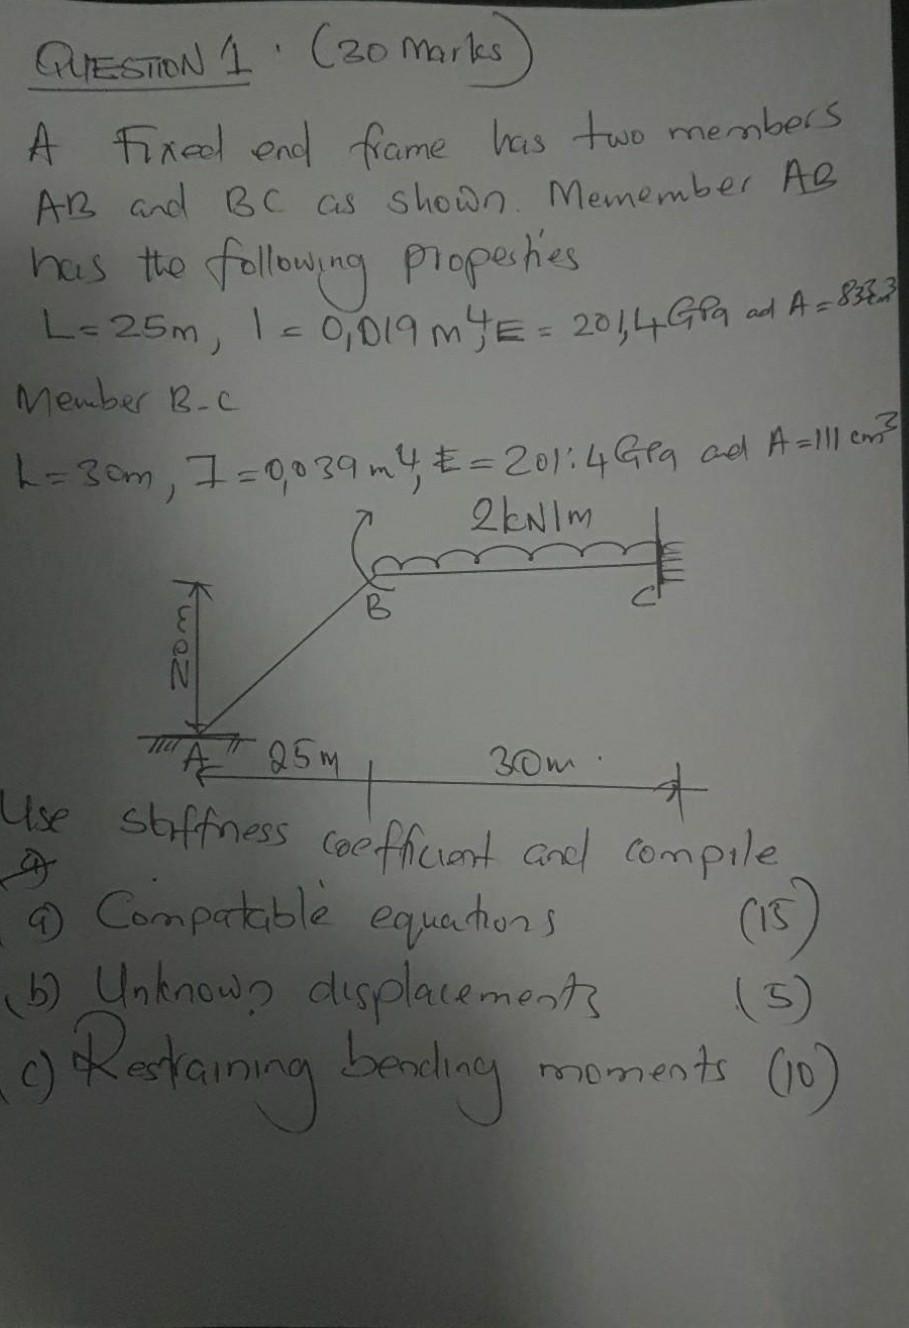 QUESTION 1. (30 Marks)
A Fixed end frame has two members
AB and BC as shown. Memember AB
has the following properties
L = 25m, I = 0,019 m⁴, E = 201,4 GPa ad A =
Member B-C
L = 30m, I = 0,039 m⁴, E = 201.4 GPa ad A = 111 cm³
2kN/m
B
C
20m
A
25m
30m.
Use stiffness coefficient and compile
a) Compatable equations (15)
(b) Unknown displacements (5)
(c) Restraining bending moments (10)